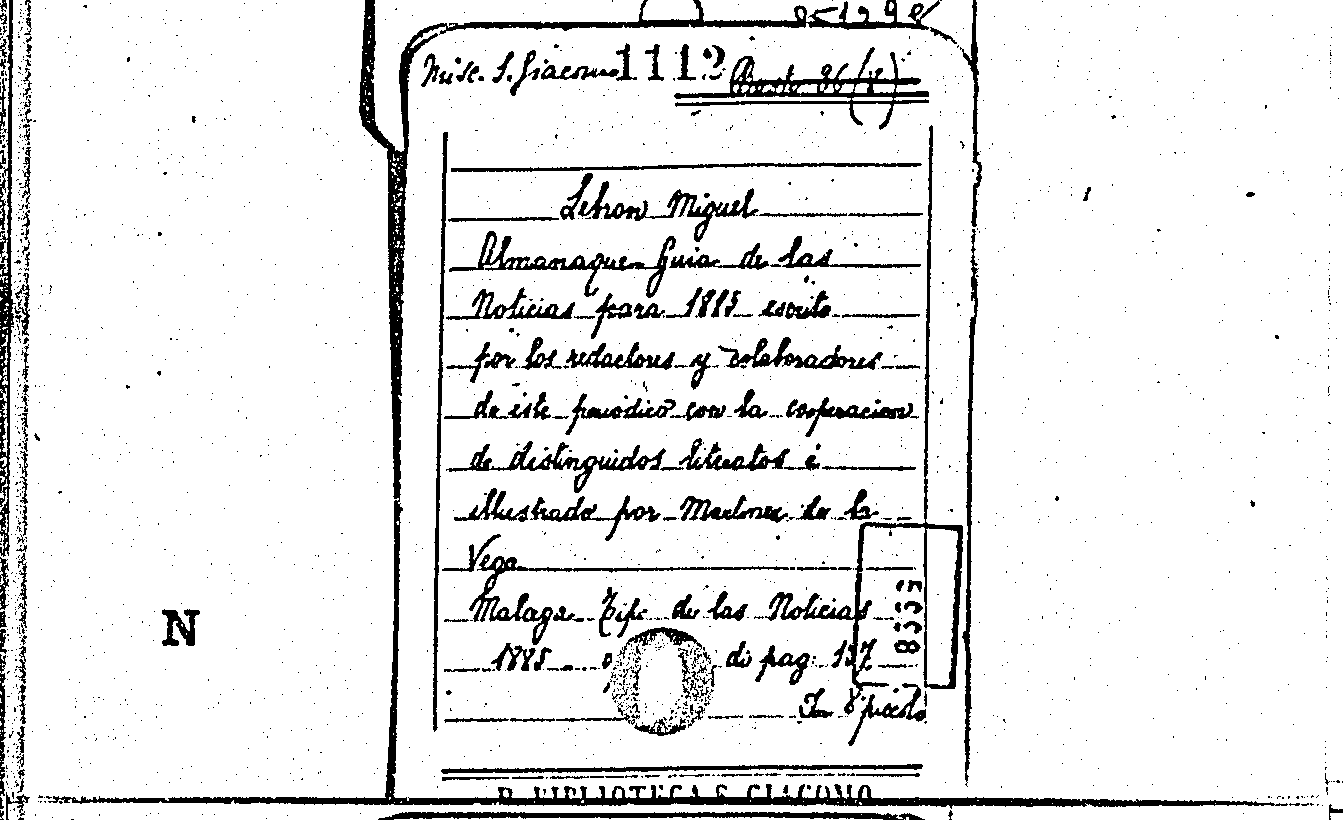 Misc. S. Giacomo 1112 Busta 86 (8)
Lebron Miguel
Almanaque Guia de las
Noticias para 1885 escrito
por los redactores y colaboradores
de este periódico con la cooperacion
de distinguidos literatos é
illustrado por Martinez de la
Vega
Malaga Tip. de las Noticias
1885 di pag. 137
In 8° piccolo
8555
N
R. BIBLIOTECA S. GIACOMO